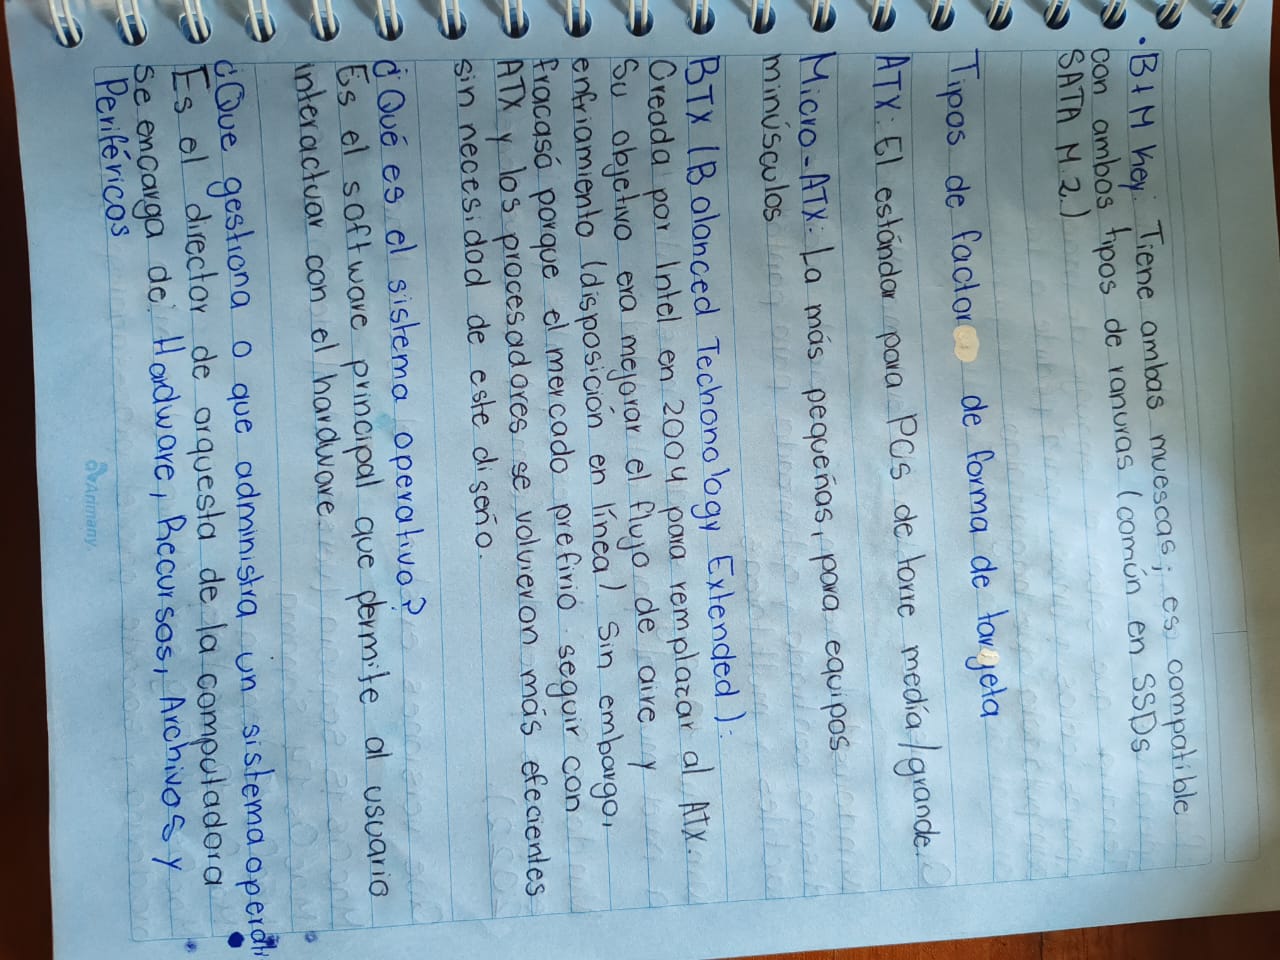 • B+M Key: Tiene ambas muescas; es compatible
con ambos tipos de ranuras (común en SSDs
SATA M.2.)
Tipos de factor de forma de tarjeta
ATX: El estándar para PCs de torre medía/grande.
Micro-ATX: La más pequeñas, para equipos
minúsculos
BTX (Balanced Techonology Extended):
Creada por Intel en 2004 para remplazar al ATX.
Su objetivo era mejorar el flujo de aire y
enfriamiento (disposición en línea) Sin embargo,
fracasó porque el mercado prefirio seguir con
ATX y los procesadores se volvieron más efecientes
sin necesidad de este diseño.
¿Qué es el sistema operativo?
Es el software principal que permite al usuario
interactuar con el hardware.
¿Que gestiona o que administra un sistema operativ
Es el director de orquesta de la computadora
Se encarga de: Hardware, Recursos, Archivos y
Periféricos
Arimany